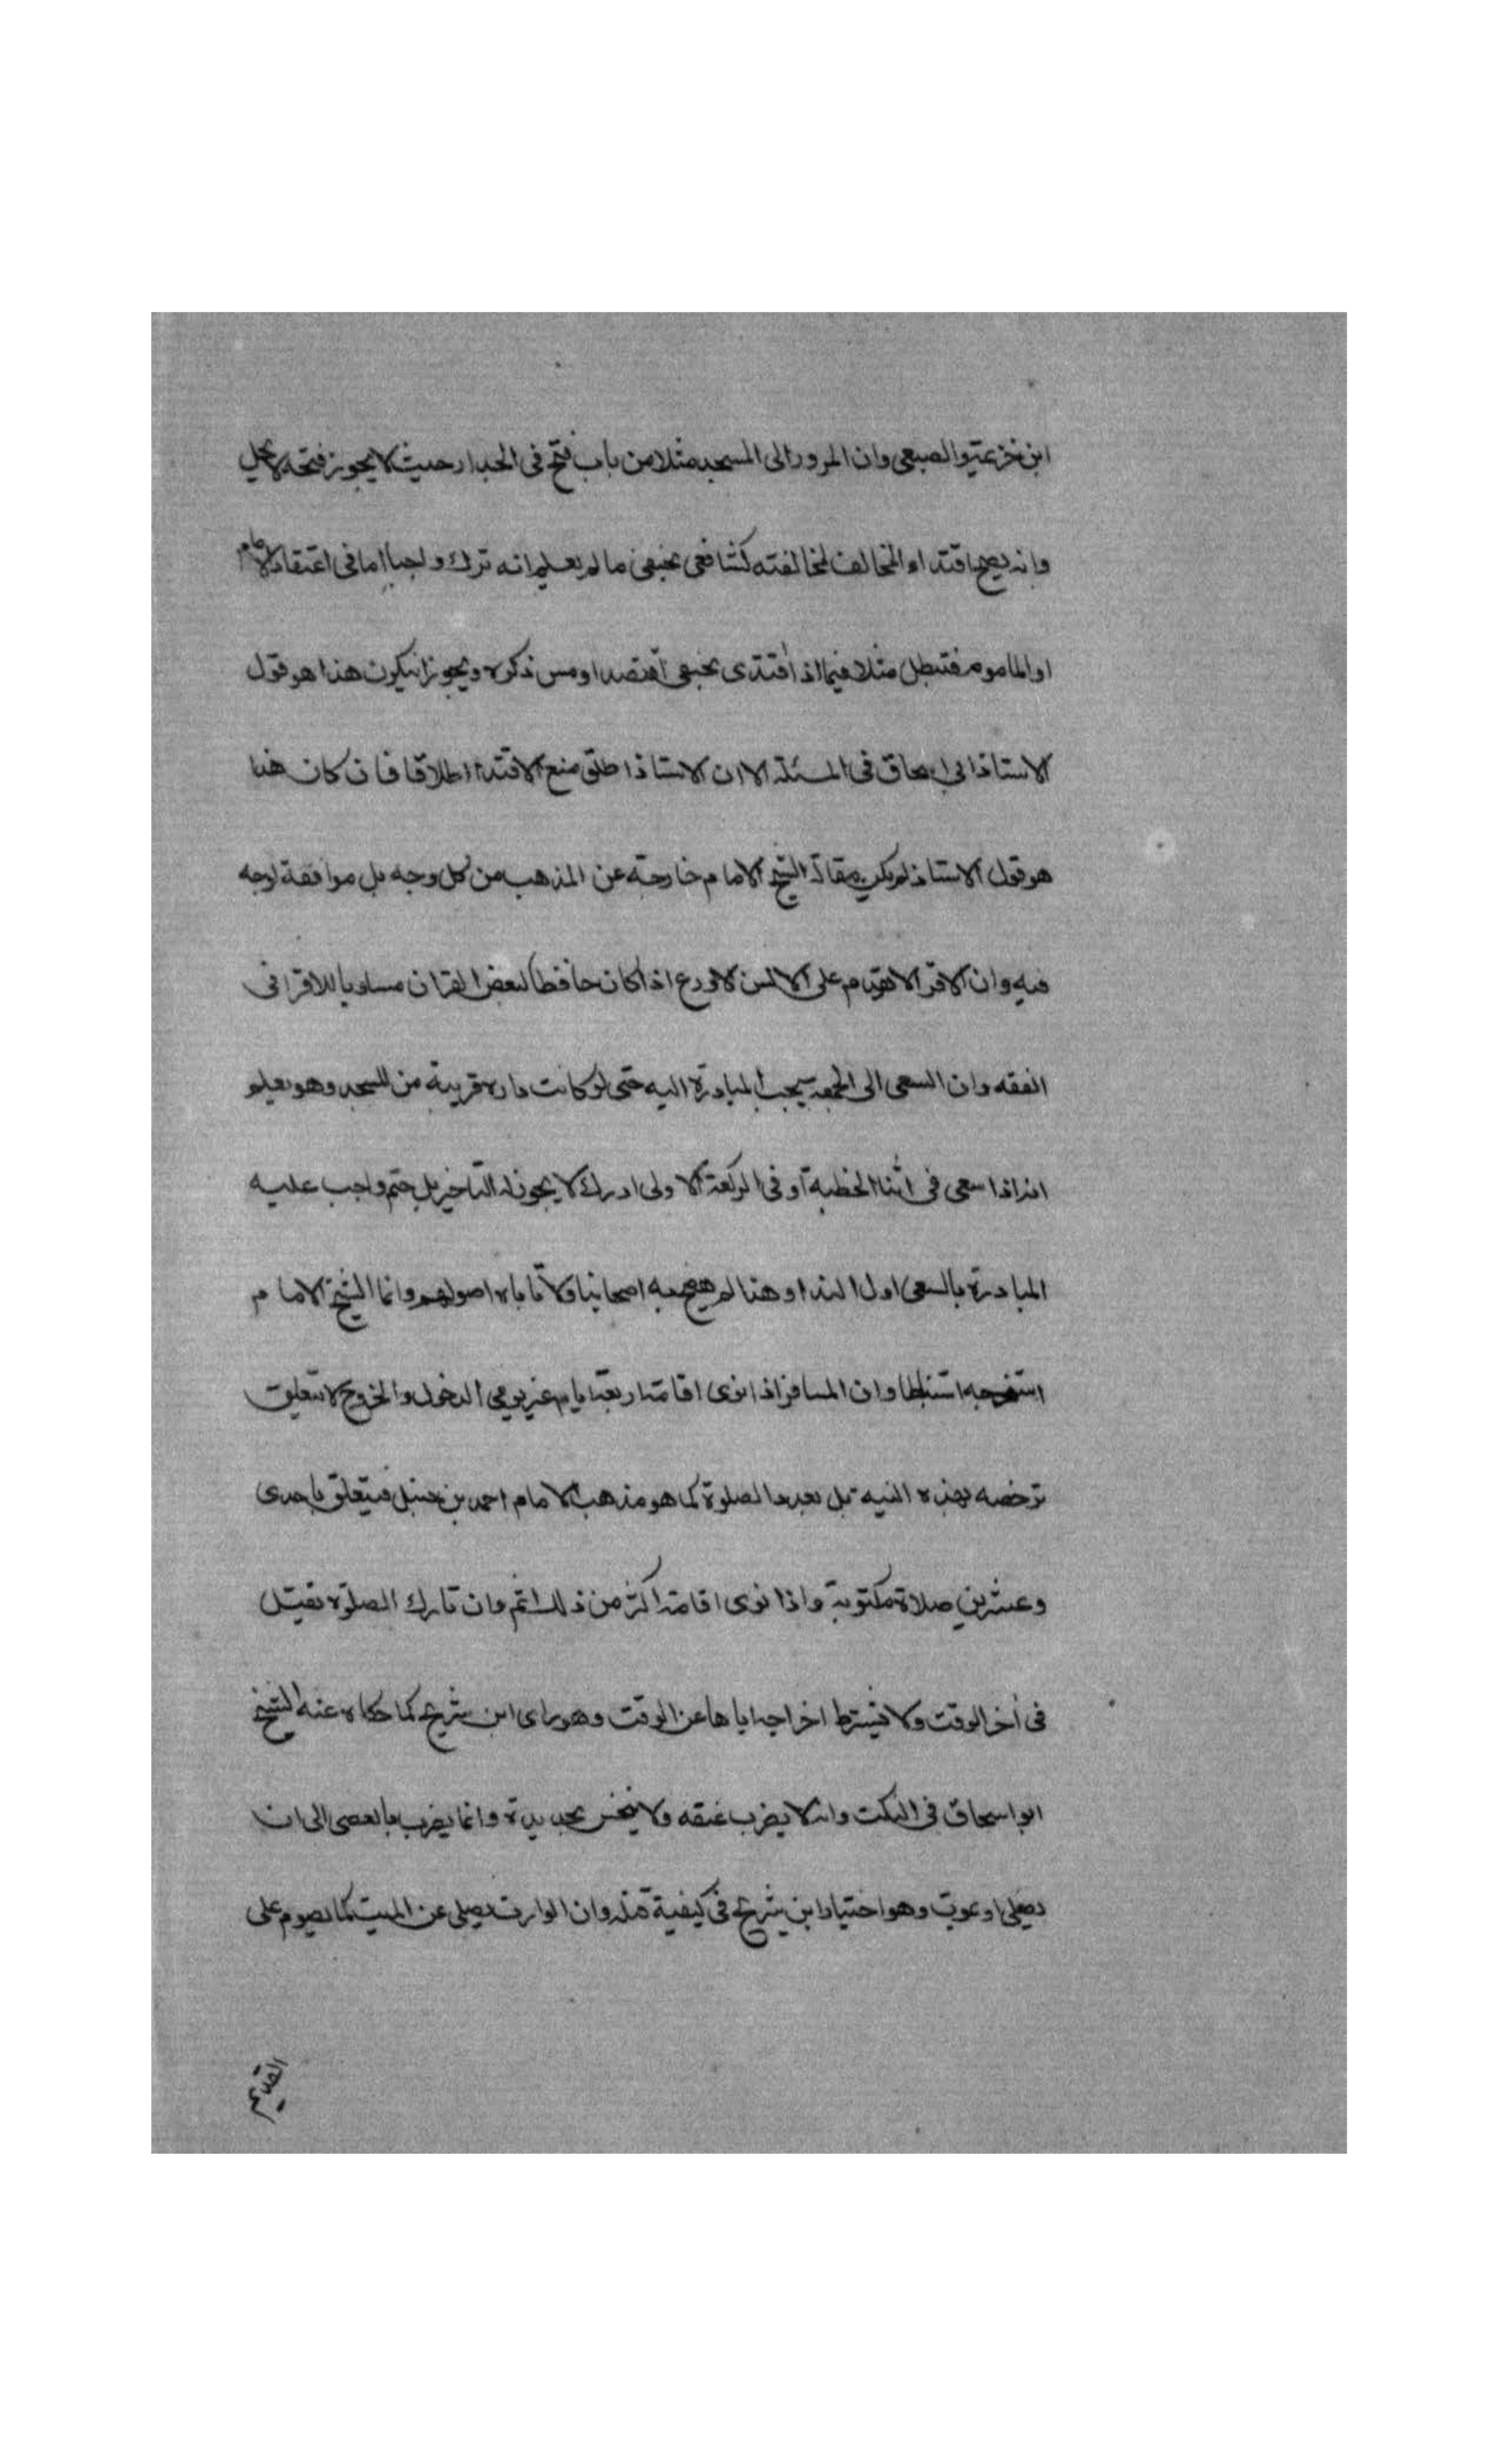 ابن خزيمة والصبغى وان المرور الى المسجد مثلا من باب فتح فى الجدار حيث لا يجوز فتحه لا يحل
وانه يصح اقتداء المخالف لمخالفته كشافعى بحنفى ما لم يعلم انه ترك واجبا اما فى اعتقاد الامام
او الماموم فتبطل مثلا فيما اذا اقتدى بحنفى افتصد او مس ذكره ويجوز ان يكون هذا هو قول
الاستاذ ابى اسحاق فى المسئلة الا ان الاستاذ اطلق منع الاقتداء اطلاقا فان كان هذا
هو قول الاستاذ لم يكن مقالة الشيخ الامام خارجة عن المذهب من كل وجه بل موافقة لوجه
فيه وان الاقرا الا على الاسن الاورع اذا كان حافظا لبعض القران مساويا للاقرا فى
الفقه وان السعى الى الجمعة يجب المبادرة اليه حتى لو كانت داره قريبة من المسجد وهو يعلم
انه اذا سعى فى اثنا الخطبة او فى الركعة الاولى ادرك لا يجوز له التاخير بل حتم واجب عليه
المبادرة بالسعى اول الندا وهذا لم به اصحابنا ولا تاباه اصولهم وانما الشيخ الامام
استخرجه استنباطا وان المسافر اذا نوى اقامة اربعة ايام غير يومى الدخول والخروج لا تتعلق
ترخصه بهذه النيه بل بعدد الصلوة كما هو مذهب الامام احمد بن حنبل فيتعلق باحدى
وعشرين صلاة مكتوبة واذا نوى اقامة اكثر من ذلك اتم وان تارك الصلوة يقتل
فى أخر الوقت ولا يشترط اخراجه اياها عن الوقت وهو راى ابن سريج كما حكاه عنه الشيخ
ابو اسحاق فى النكت وانه لا يضرب عنقه ولا ينخس بحديدة وانما يضرب بالعصى الى ان
يصلى او يموت وهو اختيار ابن شريح فى كيفية قتله وان الوارث يصلى عن الميت كما يصوم على
القديم